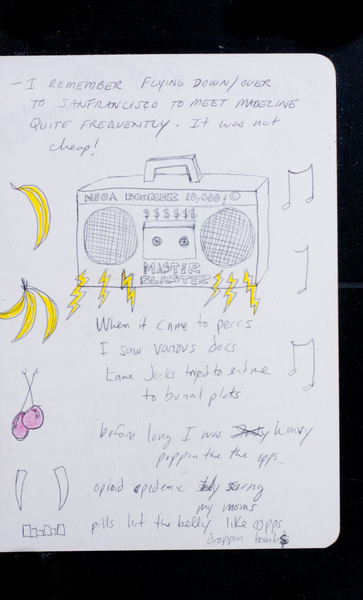 - I REMEMBER FLYING DOWN/OVER
TO SANFRANCISCO TO MEET MADELINE
QUITE FREQUENTLY. IT was not
cheap!
MEGA BOOMLER 10,000!©
$$$$$$
MASTER
BLASTER
When it came to percs
I saw various docs
Lame Jerks tried to send me
to burial plots
before long I was heavy
poppin the the opps.
opioid epidemic
my moms
pills hit the belly like opps
droppin bomb$